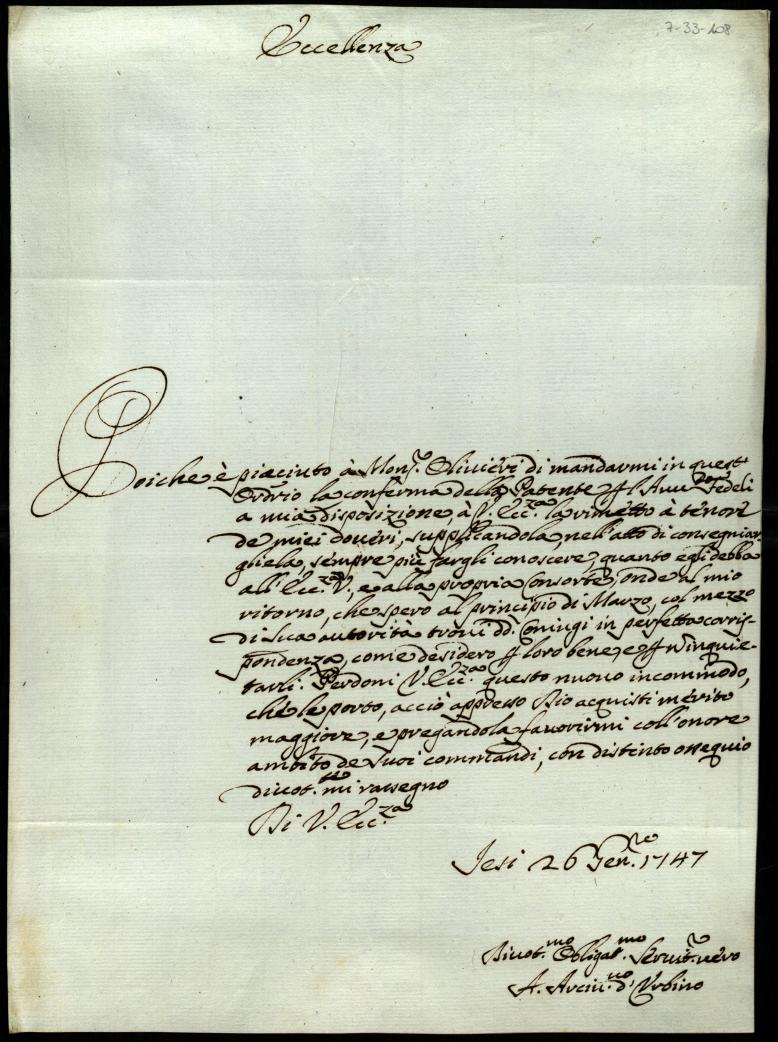 7-33-108
Eccellenza
Poiche è piaciuto à Mons.r Olivieri di mandarmi in quest'
Ord.rio la conferma della Patente p l'Avv.to Fedeli
a mia disposizione, à V. Ecc.za la rimetto à tenore
de miei doveri, supplicandola, nell'atto di consegniar-
gliela, sempre più fargli conoscere, quanto egli debba
all'Ecc.za V., e alla propria Consorte, onde al mio
ritorno, che spero al principio di Marzo, col mezzo
di sua autorità trovi dd. Coniugi in perfetta corris-
pondenza, come desidero p loro bene, e p
tarli. Perdoni V. Ecc.za questo nuovo incommodo,
che le porto, acciò appresso Dio acquisti merito
maggiore, e pregandola favorirmi coll'onore
ambito de suoi commandi, con distinto ossequio
divot.te mi rassegno
Di V. Ecc.za
Jesi 26 Gen.ro 1747
Divot.mo Obligat.mo Servit.r vero
A. Arciv.vo d'Urbino